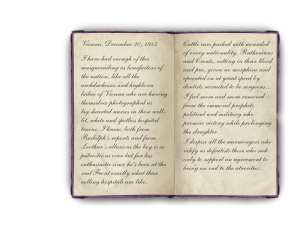 Vienna, December 20, 1915
I have had enough of this
masquerading as benefactors of
the nation, like all the
archduchesses and highborn
ladies of Vienna who are having
themselves photographed as
big-hearted nurses in their well-
lit, white and spotless hospital
trains. I know, both from
Rudolph's reports and from
Lothar's allusions the boy is as
patriotic as ever but far less
enthusiastic since he's been at the
real Front exactly what those
rolling hospitals are like.
Cattle cars packed with wounded
of every nationality, Ruthenians
and Croats, rotting in their blood
and pus, given no morphine and
operated on at great speed by
dentists recruited to surgeons.
I feel more and more removed
from the immoral prophets
political and military who
promise victory while prolonging
the slaughter.
I despise all the warmongers who
vilify as defeatists those who seek
only to support an agreement to
bring an end to the atrocities.